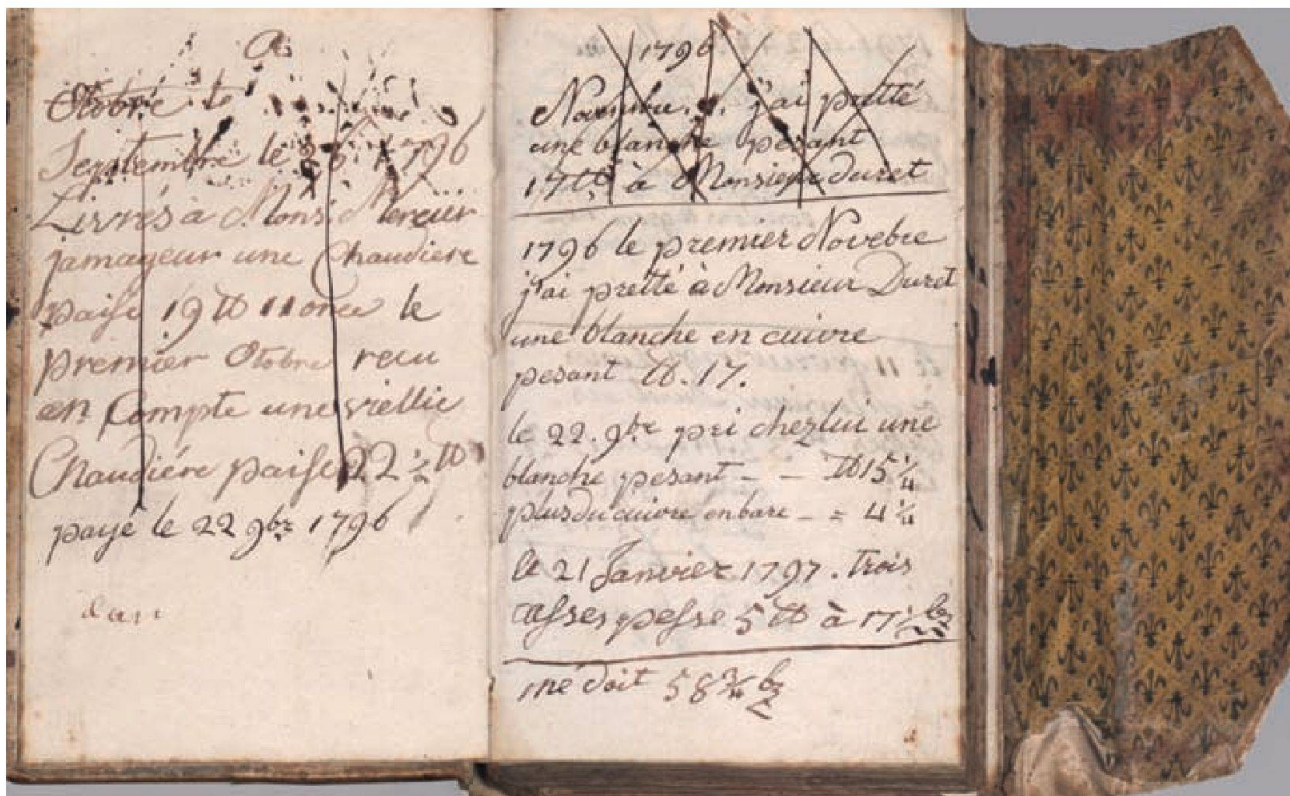 a
Otobre le
Septembre le 26 1796
Livrés à Mons. Mercier
jamayeur une Chaudiere
paise 19 ℔ 11 once le
premier Otobre recu
en Compte une viellie
Chaudiére paise 22 ½ ℔
payé le 22 9bre 1796
dan
1796
Novembre. 1. j'ai pretté
une blanche pesant
17 ℔ à Monsieur Duret
1796 le premier Novebre
j'ai pretté à Monsieur Duret
une blanche en cuivre
pesant ℔. 17.
le 22. 9bre pri chez lui une
blanche pesant - - ℔ 15 ¼
plus du cuivre en bare - = 4 ¼
le 21 Janvier 1797. trois
casses pesse 5 ℔ à 17 ½ bz
me doit 58 ¾ bz